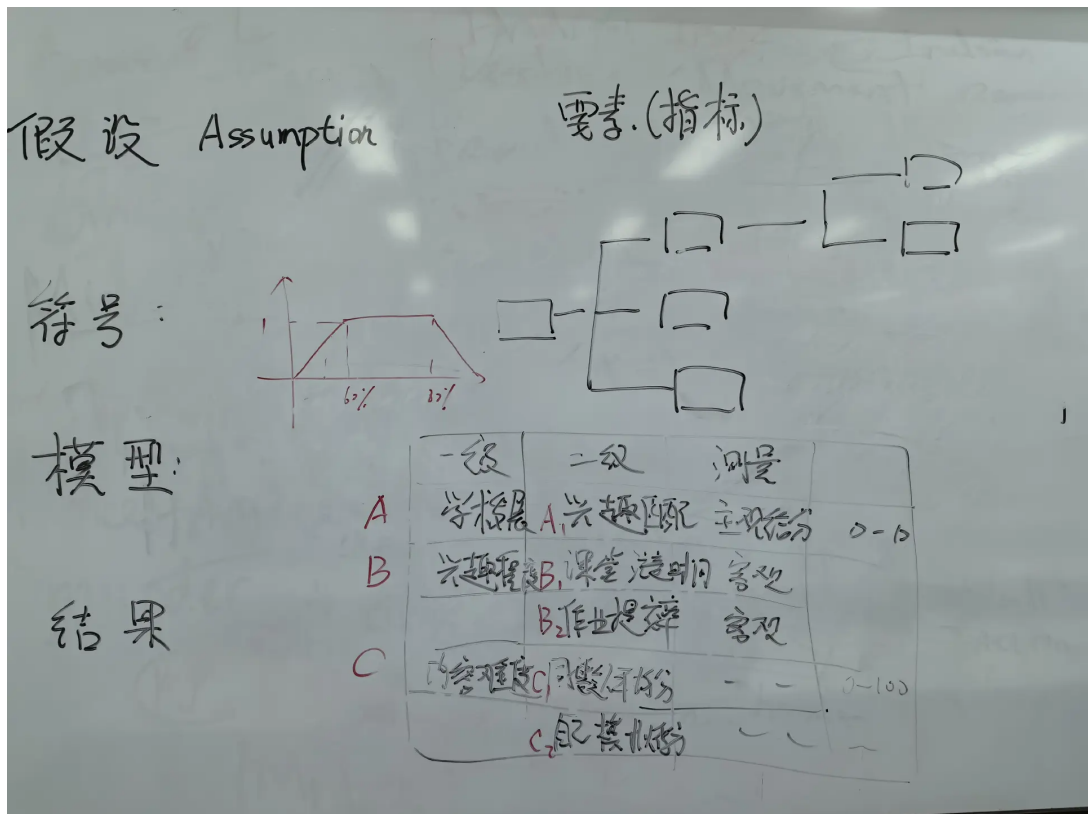 假设 Assumption
要素.(指标)
符号:
1
60% 80%
模型:
结果
一级 二级 测量
A A1兴趣匹配 主观给分 0-10
B 兴趣程度 B1课堂注意时间 客观
B2作业提交率 客观
C 内容难度 C1 平均分 - - 0-100
C2自己模